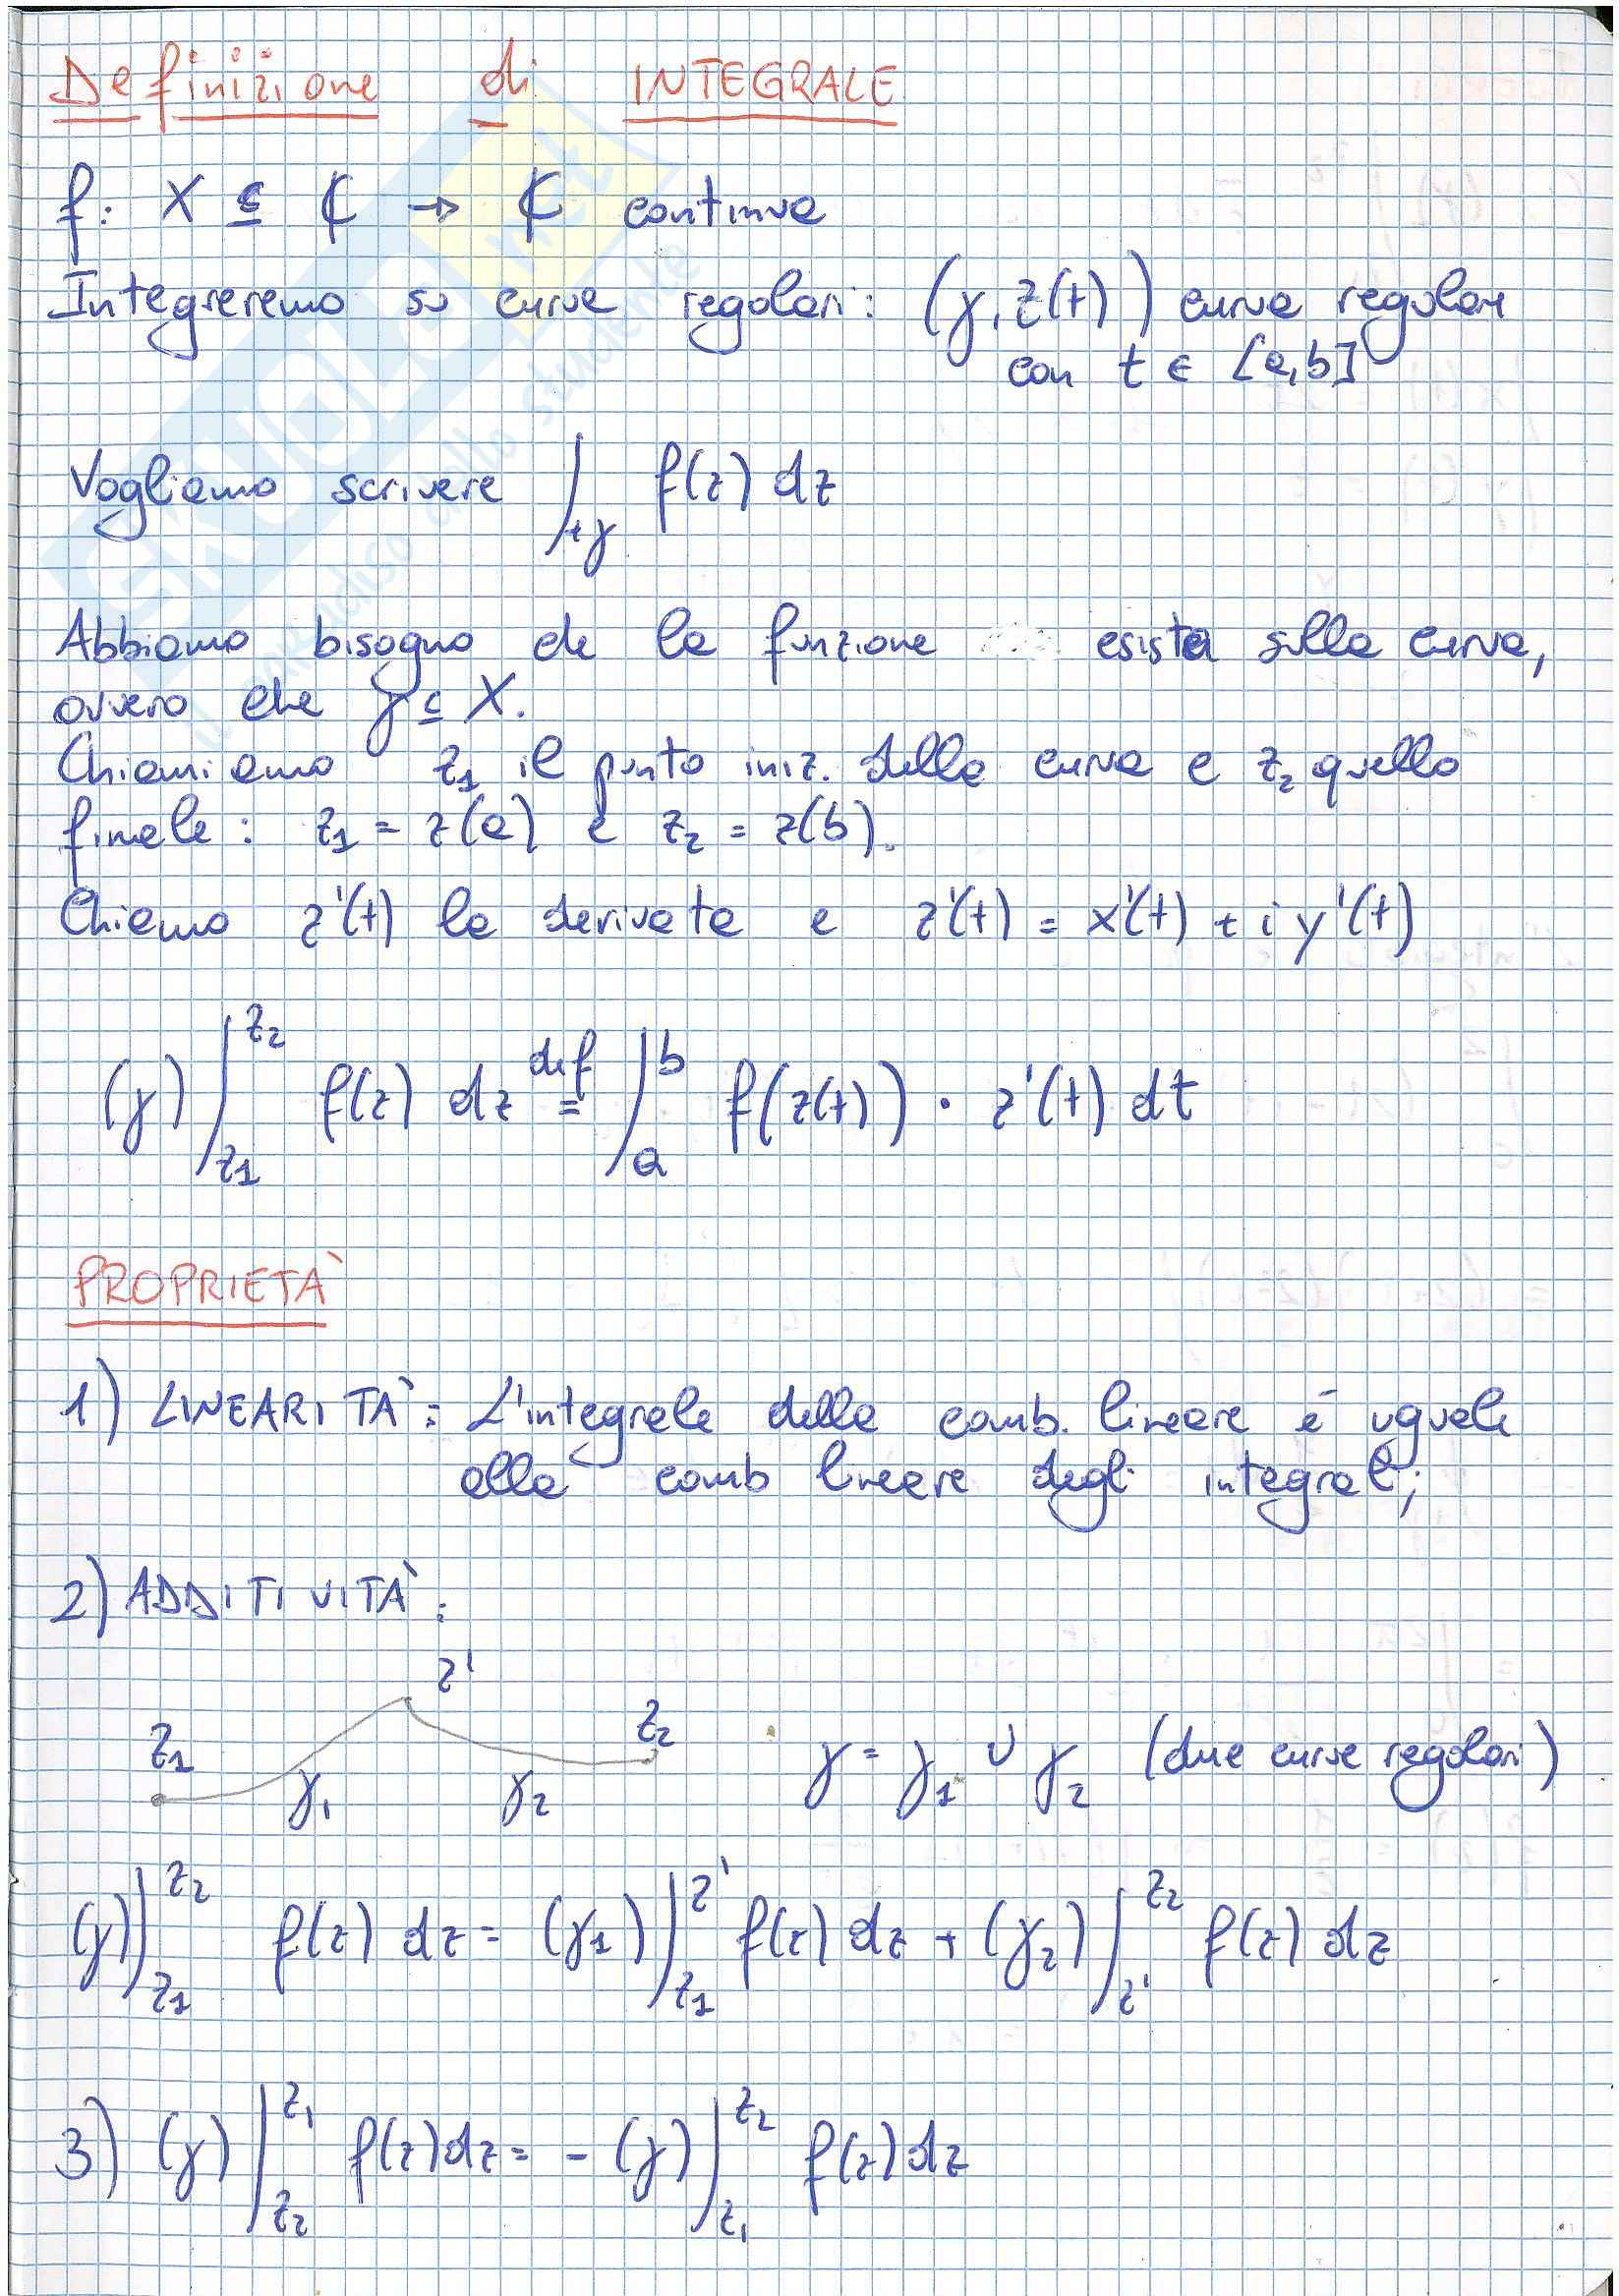 Definizione di INTEGRALE
f: X ⊆ ℂ → ℂ continua
Integreremo su curve regolari: (γ, z(t)) curva regolare
con t ∈ [a,b]
Vogliamo scrivere ∫+γ f(z) dz
Abbiamo bisogno che la funzione esista sulla curva,
ovvero che γ ⊆ X.
Chiamiamo z₁ il punto iniz. della curva e z₂ quello
finale: z₁ = z(a) e z₂ = z(b).
Chiamo z'(t) la derivata e z'(t) = x'(t) + i y'(t)
(γ) ∫_{z₁}^{z₂} f(z) dz def= ∫_a^b f(z(t)) · z'(t) dt
PROPRIETÀ
1) LINEARITÀ: L'integrale della comb. lineare è uguale
alla comb lineare degli integrali;
2) ADDITIVITÀ:
z'
z₁ z₂
γ₁ γ₂ γ = γ₁ ∪ γ₂ (due curve regolari)
(γ) ∫_{z₁}^{z₂} f(z) dz = (γ₁) ∫_{z₁}^{z'} f(z) dz + (γ₂) ∫_{z'}^{z₂} f(z) dz
3) (γ) ∫_{z₂}^{z₁} f(z) dz = - (γ) ∫_{z₁}^{z₂} f(z) dz
SKUOLA.net
il paradiso dello studente